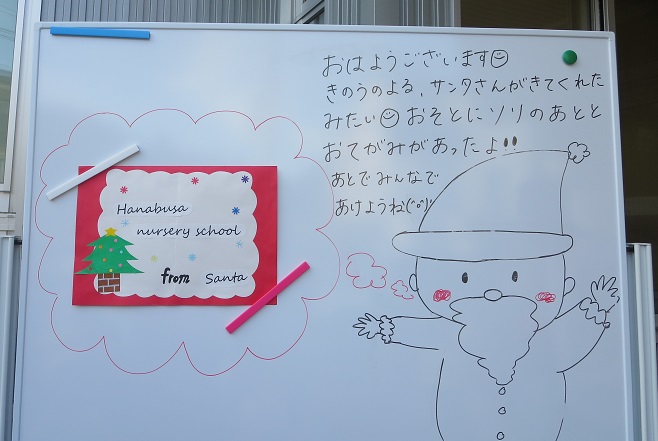 おはようございます☺
きのうのよる、サンタさんがきてくれた
みたい☺おそとにソリのあとと
おてがみがあったよ!!
あとでみんなで
あけようね(^o^)!
Hanabusa
nursery school
from Santa